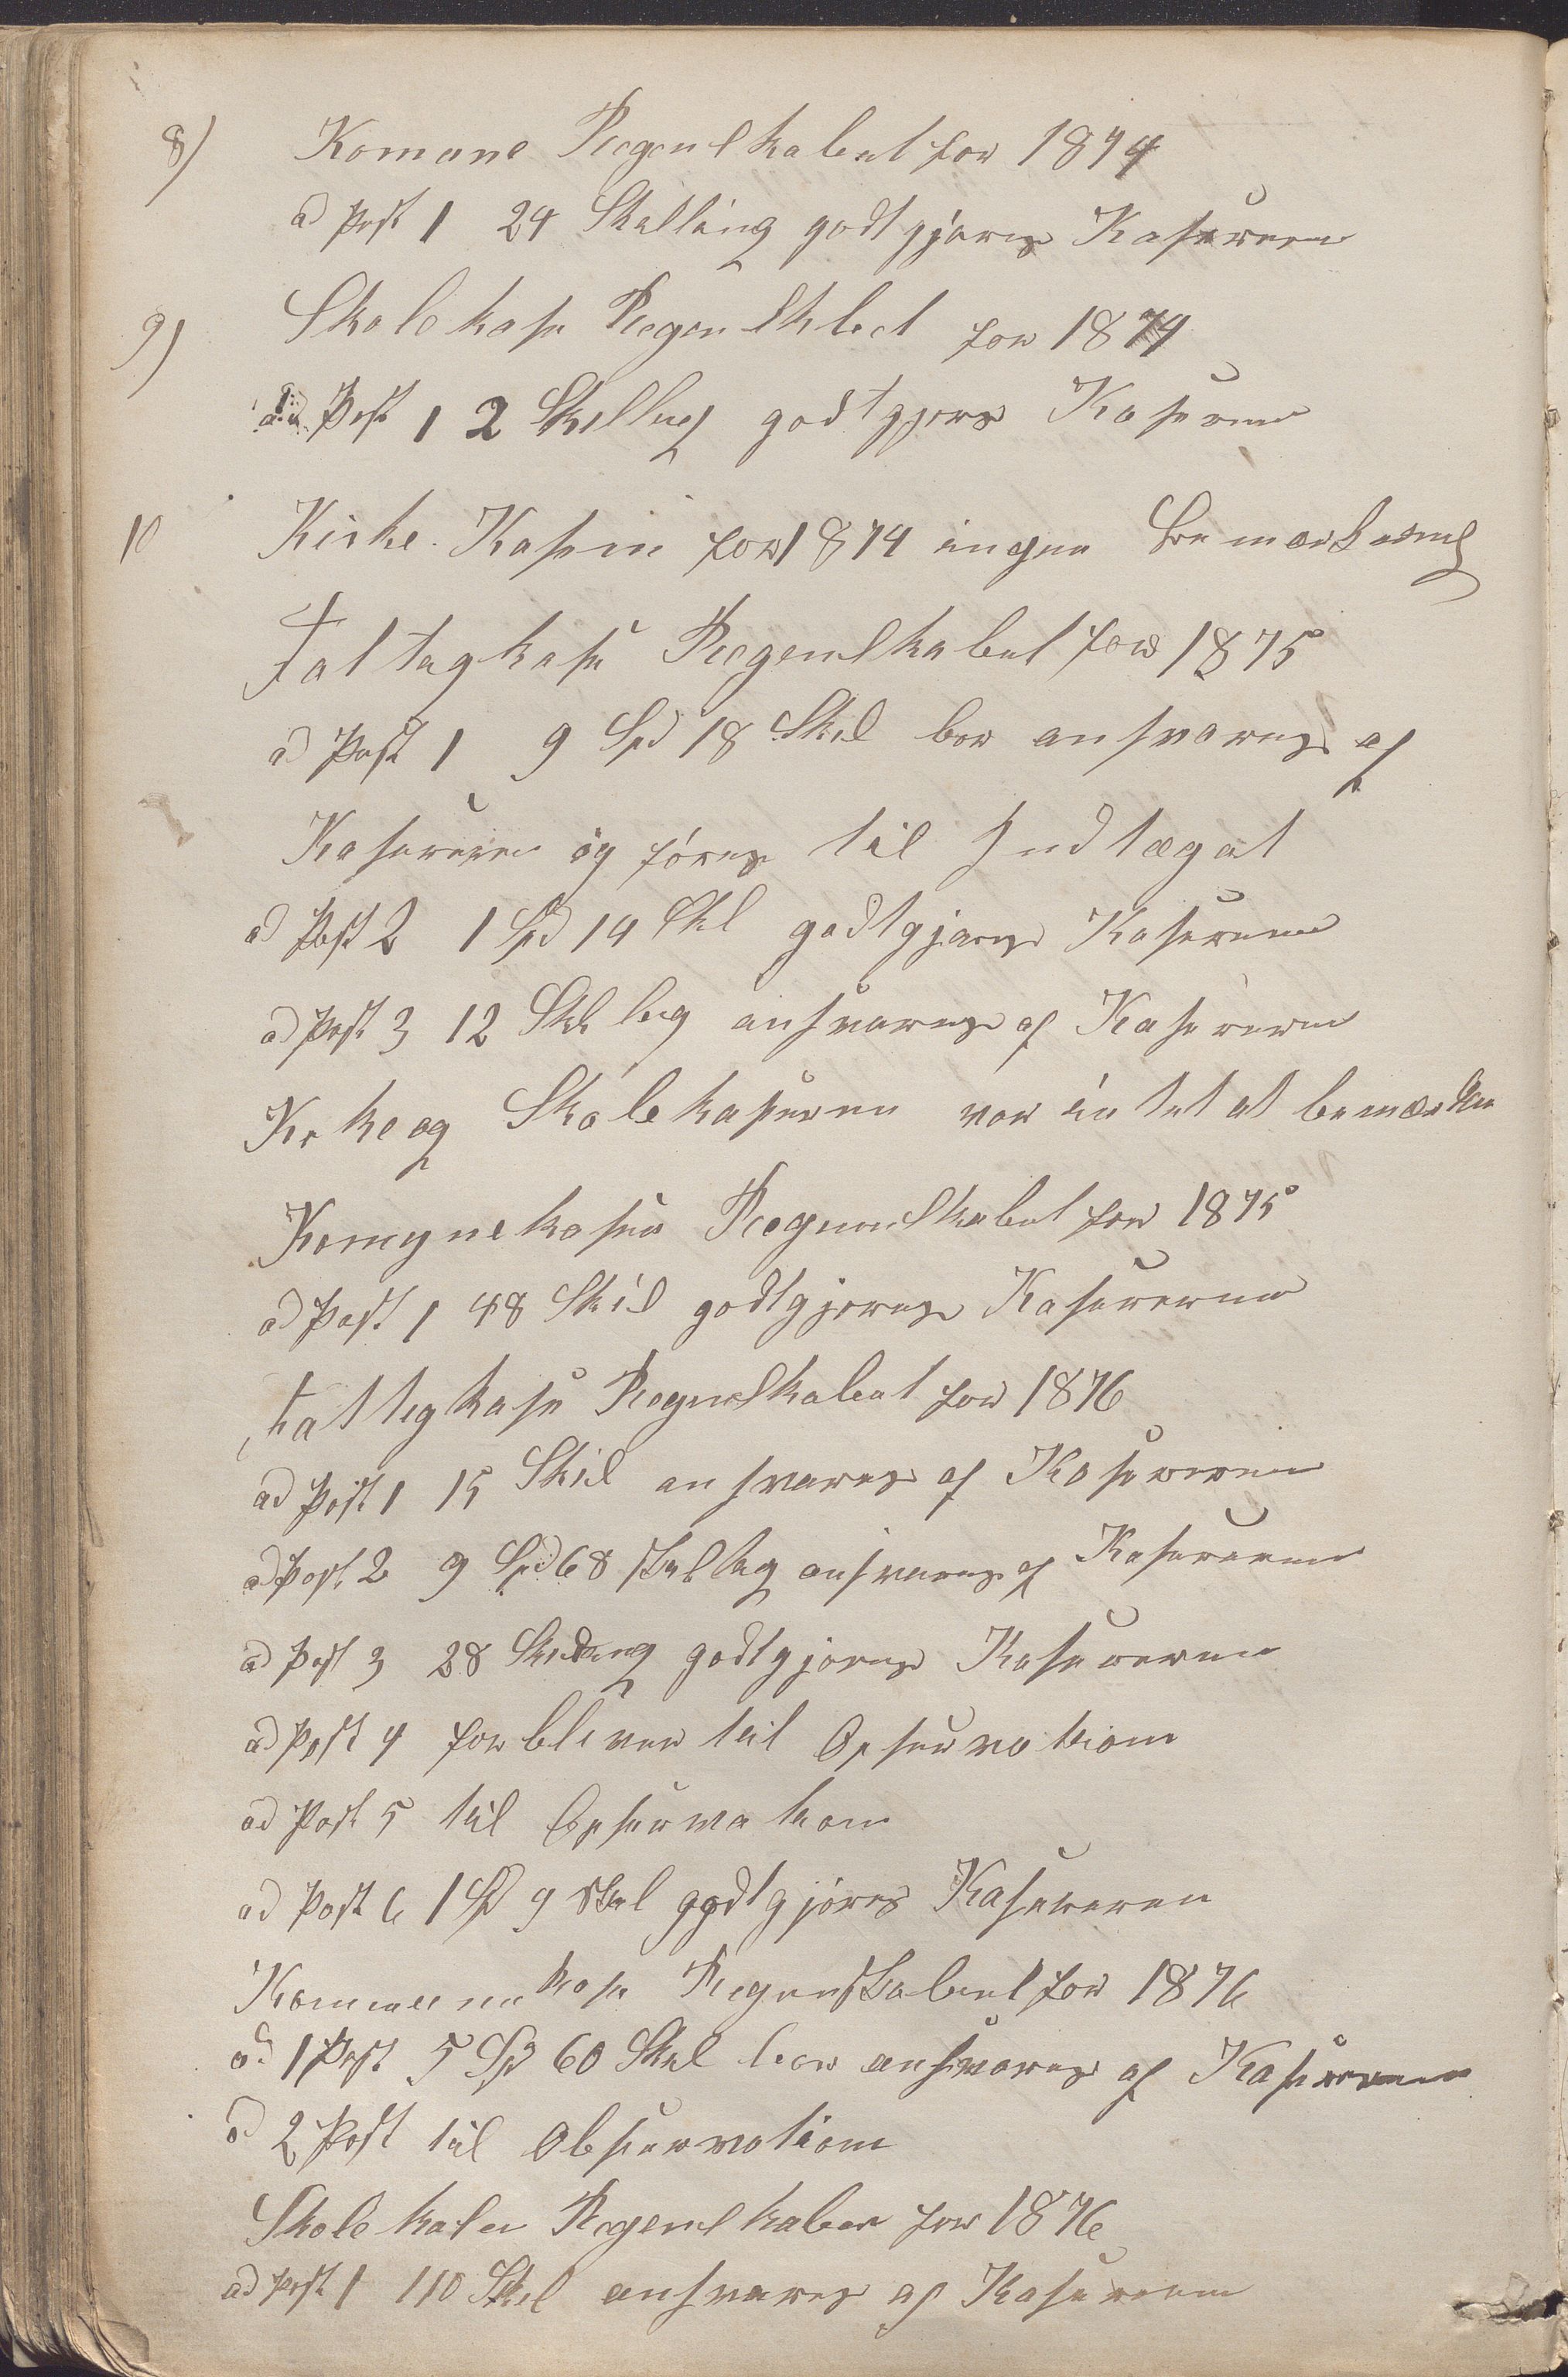 8) Komune Regenskabet for 1874
ad Post 1 24 Skelling godtgjøres Kasereren
9) Skolekase Regenskbet for 1874
ad Post 1 2 Skelling godtgjøres Kaseren
10 Kirke Kasen for 1874 ingen Bemærkning
Fattigkase Regenskabet for 1875
ad Post 1 9 Spd 18 Skil bør ansvares af
Kasereren og føres til Indtægt
ad Post 2 1 Spd 14 Skl godtgjøres Kasereren
ad Post 3 12 Skling ansvares af Kasereren
Kirke og Skolekaseren var intet at bemærke
Komunekase Regnenskabet for 1875
ad Post 1 48 Skil godtgjøres Kasereren
Fattigkase Regnskabet for 1876
ad Post 1 15 Skil ansvares af Kasereren
ad Post 2 9 Spd 68 skelling ansvares af Kasereren
ad Post 3 28 Skilling godtgjøres Kasereren
ad Post 4 forbliver til Opservation
ad Post 5 til Opservation
ad Post 6 1 Sp 9 skel godtgjøres Kasereren
Kommunekase Regenskabet for 1876
ad 1 Post 5 Sp 60 Skel bør ansvares af Kasereren
ad 2 Post til Observation
Skolekasen Regenskaber for 1876
ad Post 1 110 Skel ansvares af Kasereren